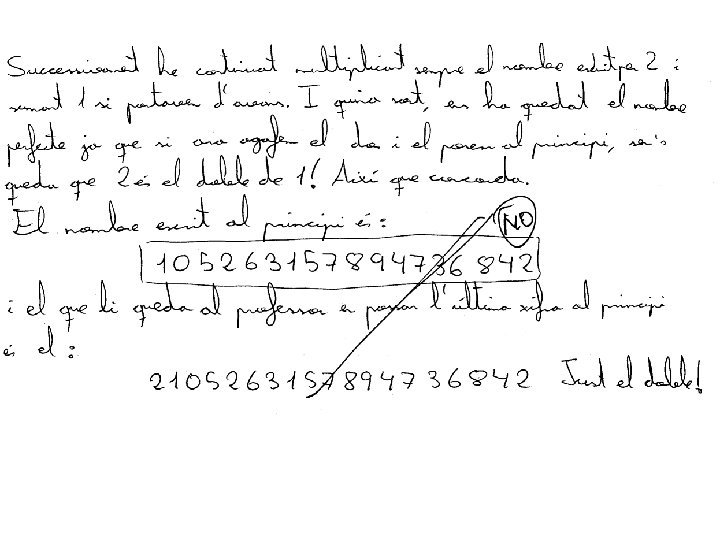 Successivament he continuat multiplicant sempre el nombre escrit per 2 i
sumant 1 si portaven d'avans. I quina sort, em ha quedat el nombre
perfecte ja que si ara agafem el dos i el posem al principi, se'ns
queda que 2 és el doble de 1! Així que concorda.
El nombre escrit al principi és: NO
105263157894736842
i el que li queda al professor en passar l'última xifra al principi
és el:
210526315789473 6842 Just el doble!